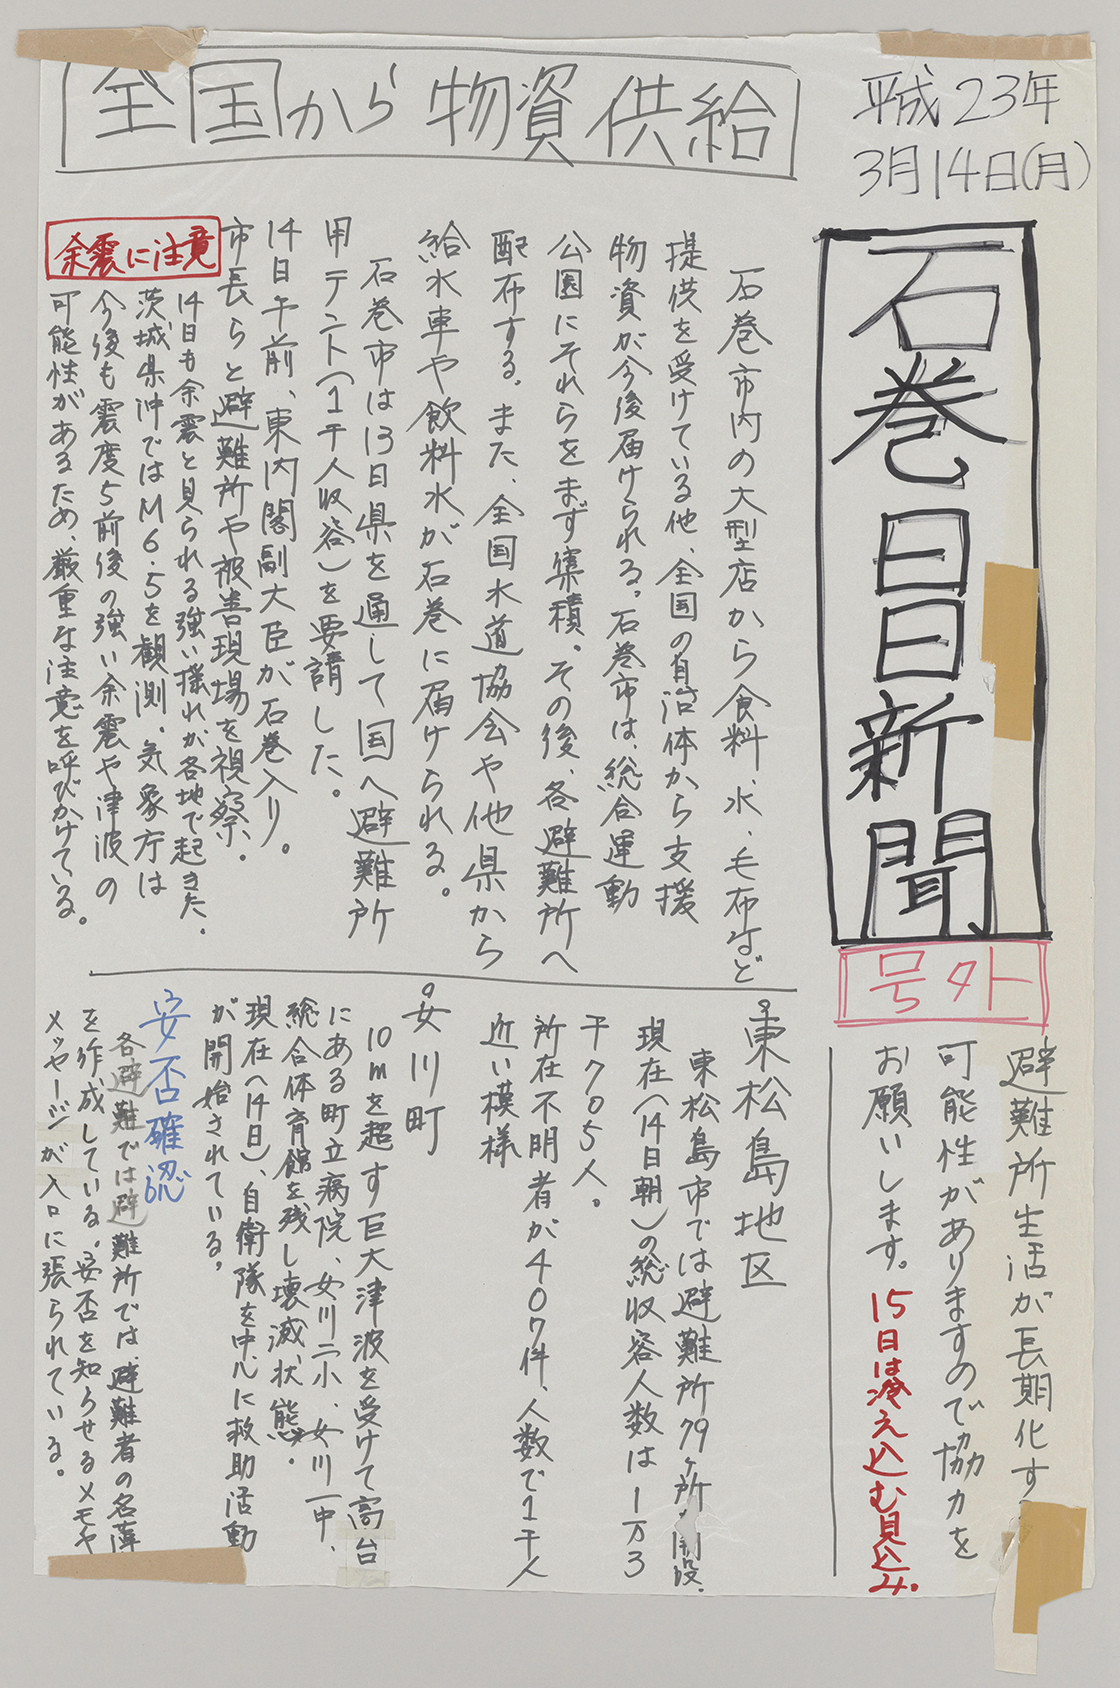 平成23年
3月14日(月)
石巻日日新聞
号外
避難所生活が長期化す
可能性がありますので協力を
お願いします。15日は冷え込む見込み。
全国から物資供給
石巻市内の大型店から食料、水、毛布など
提供を受けている他、全国の自治体から支援
物資が今後届けられる。石巻市は、総合運動
公園にそれらをまず集積。その後、各避難所へ
配布する。また、全国水道協会や他県から
給水車や飲料水が石巻に届けられる。
石巻市は13日県を通して国へ避難所
用テント(1千人収容)を要請した。
14日午前、東内閣副大臣が石巻入り。
市長らと避難所や被害現場を視察。
余震に注意
14日も余震と見られる強い揺れが各地で起きた。
茨城県沖ではM6.5を観測。気象庁は
今後も震度5前後の強い余震や津波の
可能性があるため、厳重な注意を呼びかけている。
東松島地区
東松島市では避難所79ヶ所開設。
現在(14日朝)の総収容人数は1万3
千705人。
所在不明者が407件、人数で1千人
近い模様
女川町
10mを超す巨大津波を受けて高台
にある町立病院、女川二小、女川一中、
総合体育館を残し壊滅状態。
現在(14日)、自衛隊を中心に救助活動
が開始されている。
安否確認
各避難では避難所では、避難者の名簿
を作成している。安否を知らせるメモや
メッセージが入口に張られている。